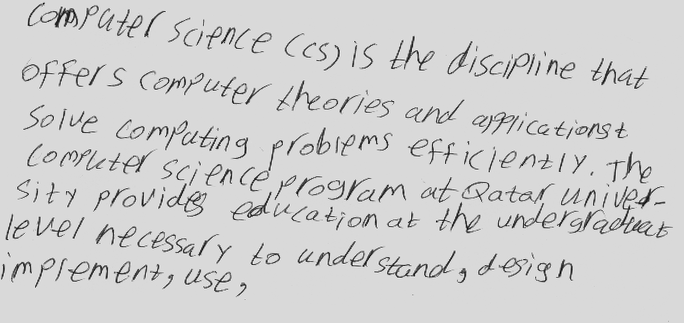 Computer Science (CS) is the discipline that
offers computer theories and applicationst
solve computing problems efficiently. The
computer science program at Qatar univer-
sity provides education at the undergraduat
level necessary to understand, design
implement, use,